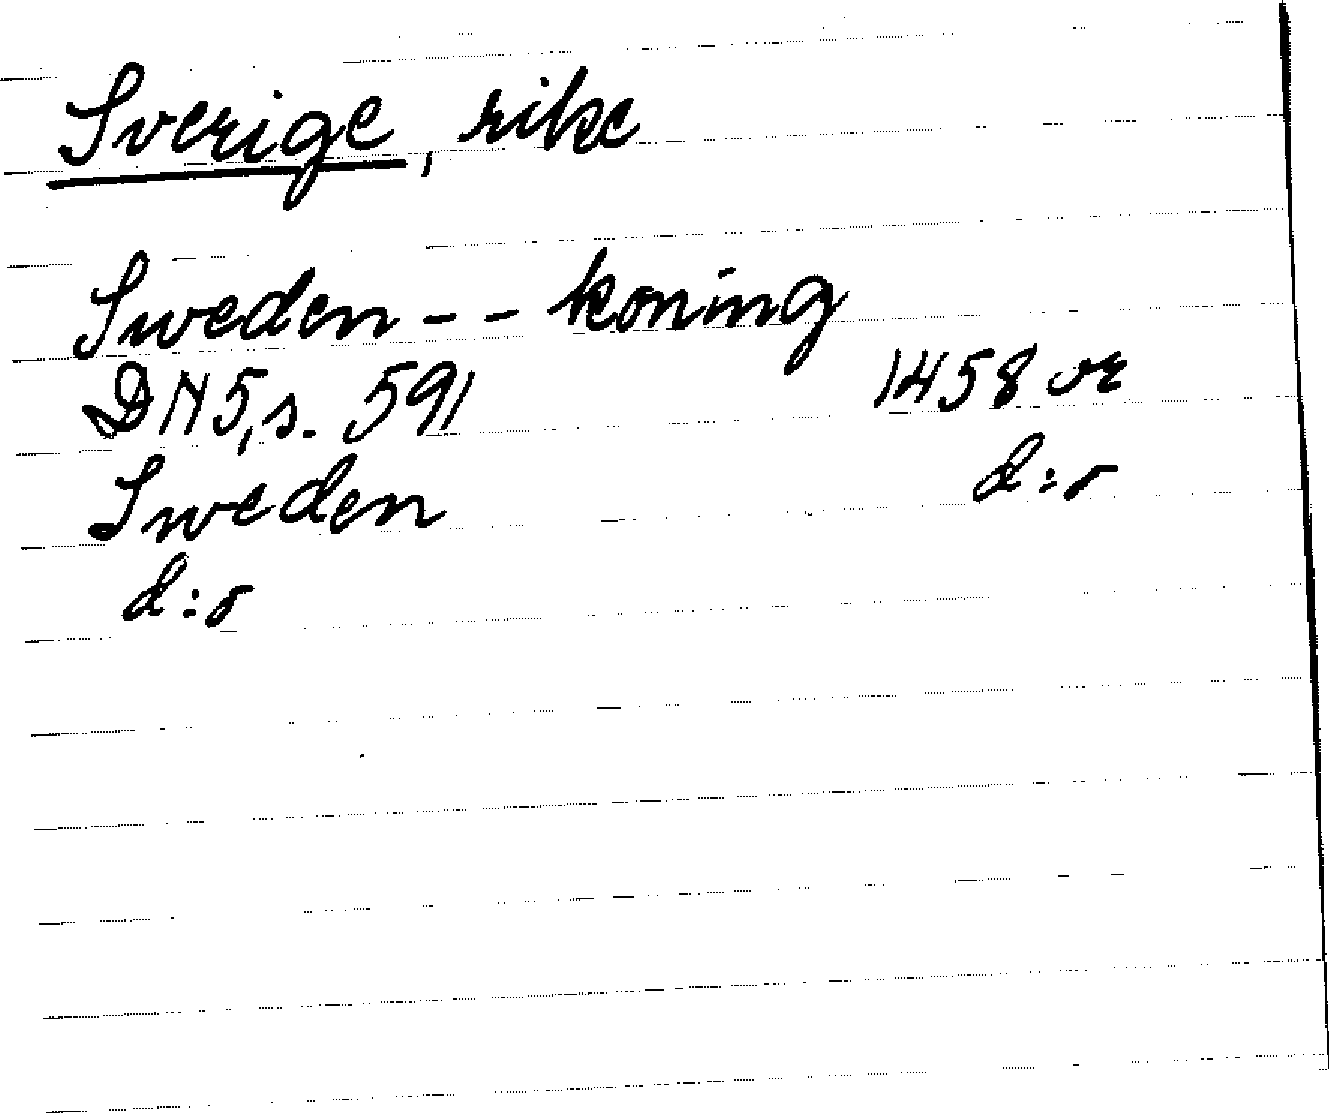 Sverige, rike
Sweden - - koning
DN5,s. 591 1458 or
Sweden d:o
d:o